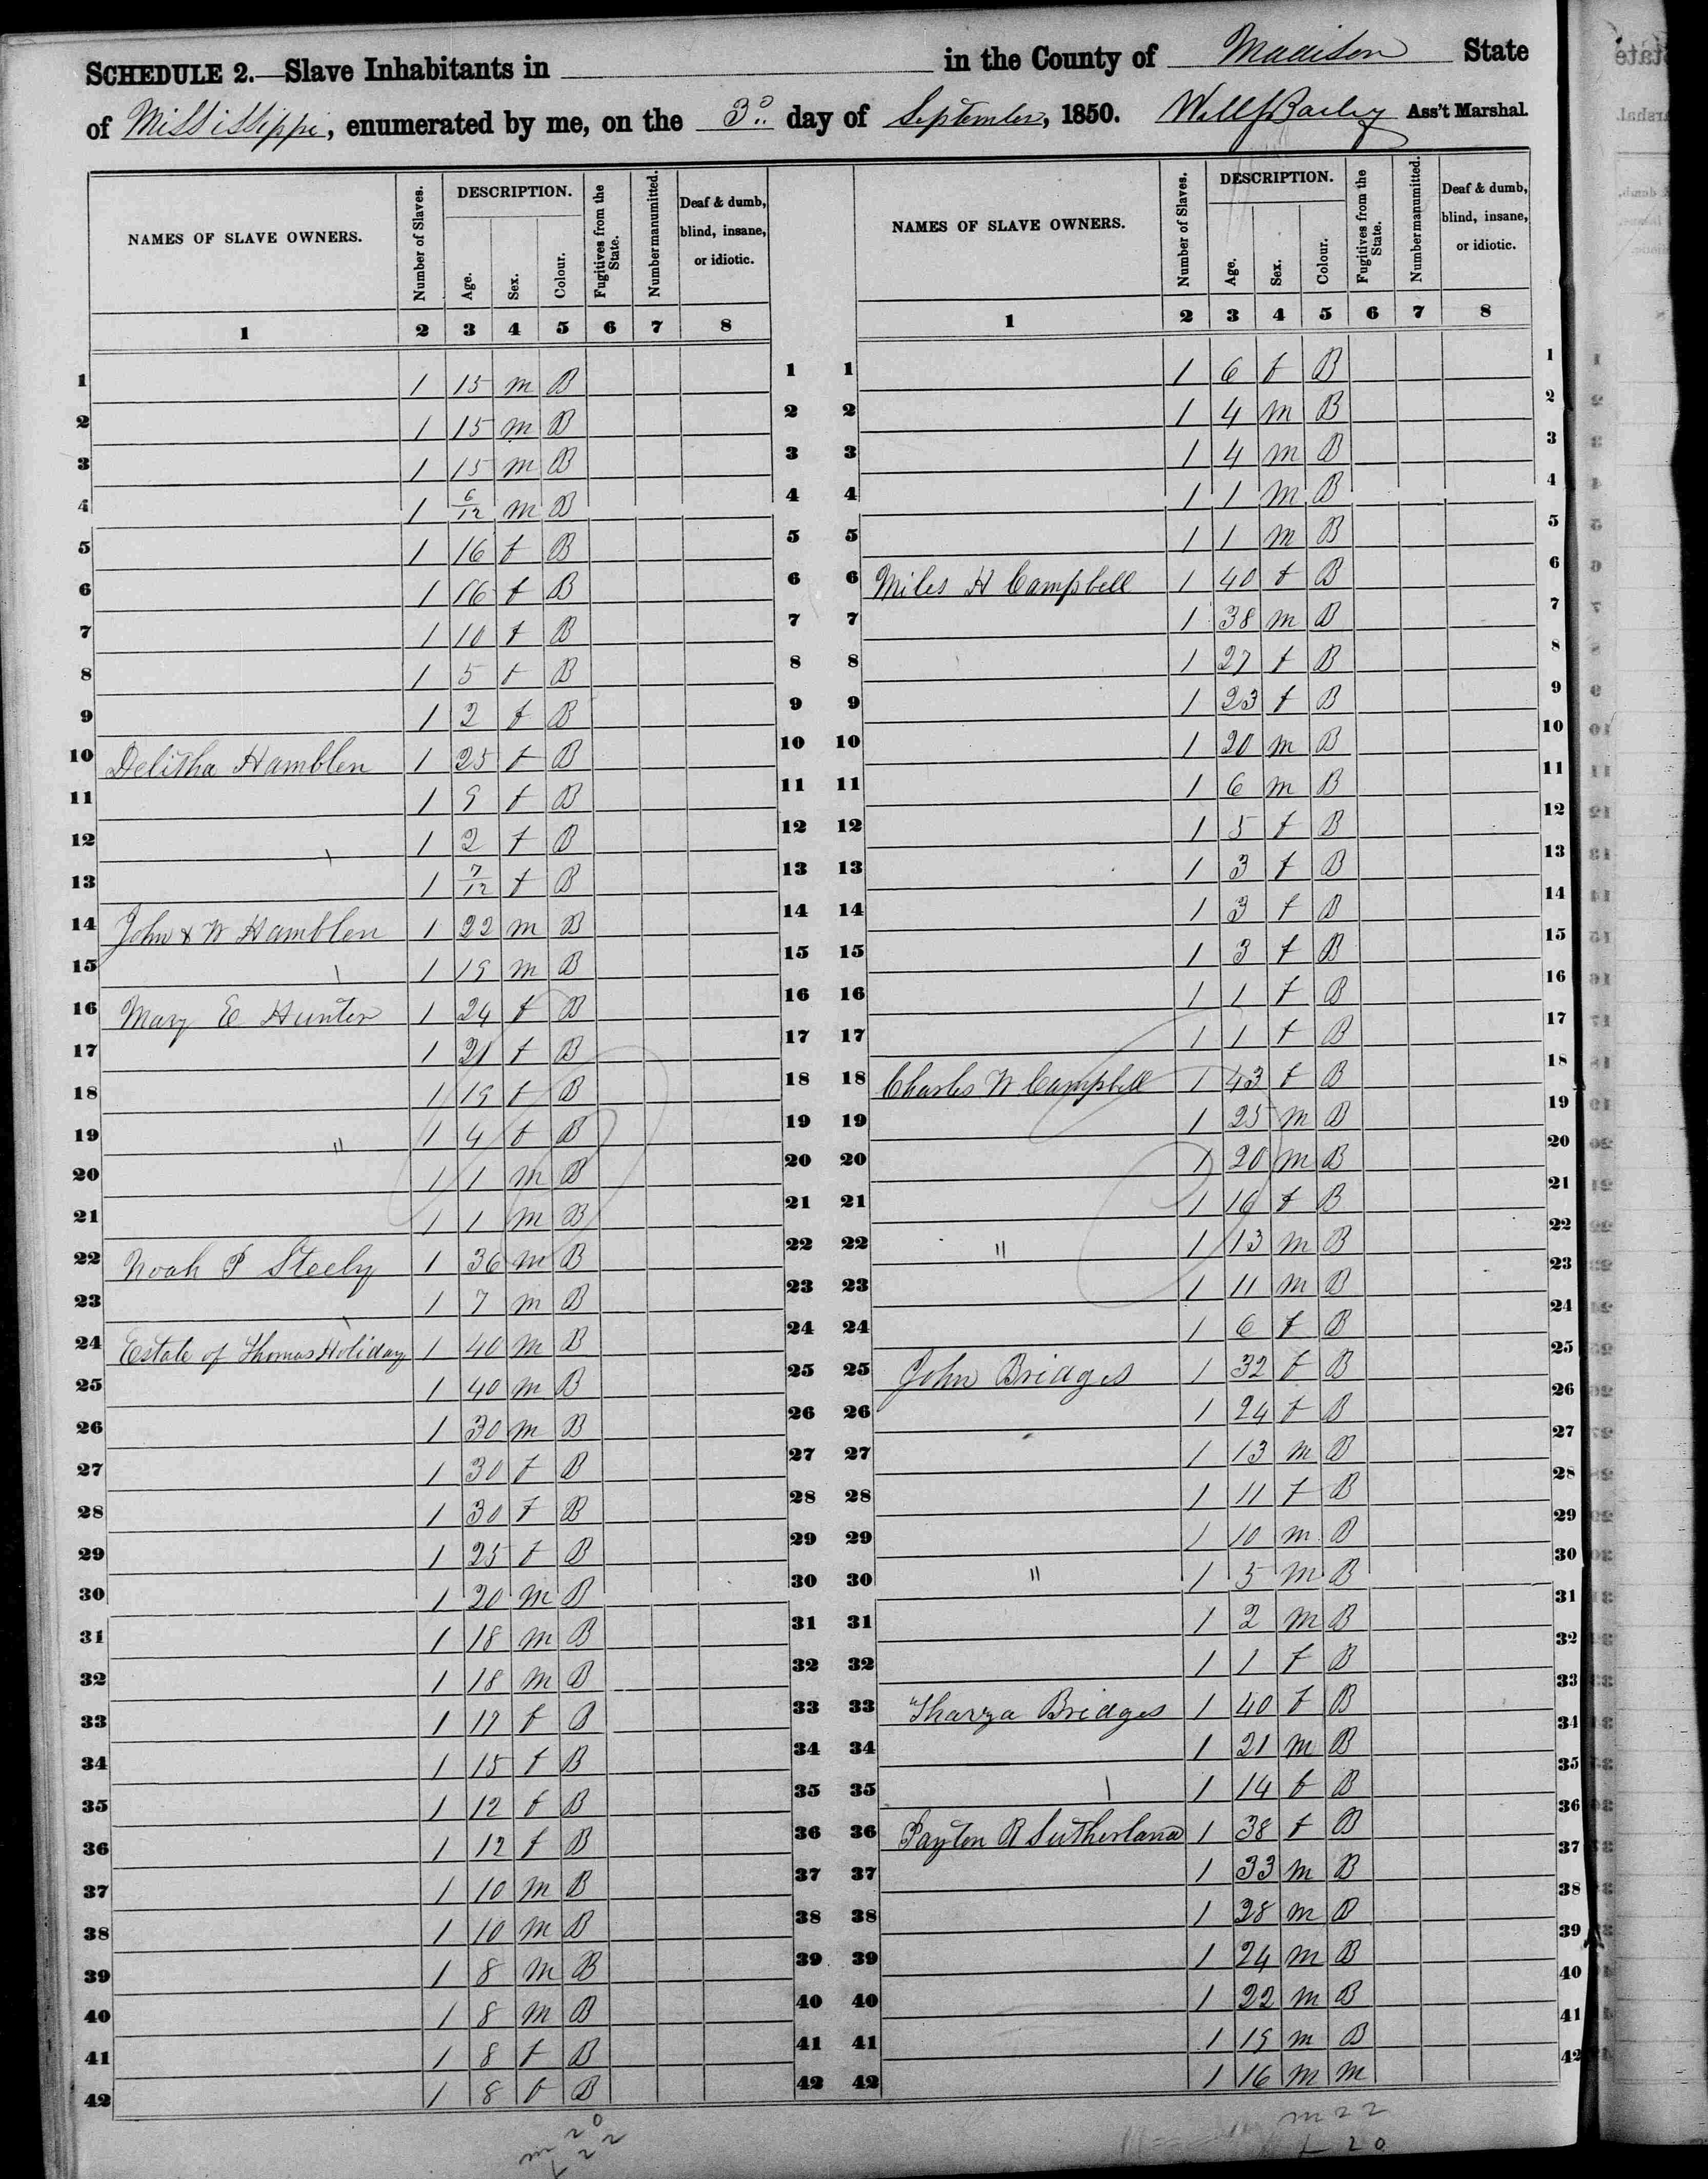 SCHEDULE 2.—Slave Inhabitants in in the County of Madison State
of Mississippi, enumerated by me, on the 3d day of September, 1850. Ass't Marshal.
NAMES OF SLAVE OWNERS. Number of Slaves. DESCRIPTION. Age. Sex. Colour. Fugitives from the State. Number manumitted. Deaf & dumb, blind, insane, or idiotic. NAMES OF SLAVE OWNERS. Number of Slaves. DESCRIPTION. Age. Sex. Colour. Fugitives from the State. Number manumitted. Deaf & dumb, blind, insane, or idiotic.
1 2 3 4 5 6 7 8 1 2 3 4 5 6 7 8
1 1 15 m B 1 1 1 6 f B 1
2 1 15 m B 2 2 1 4 m B 2
3 1 15 m B 3 3 1 4 m B 3
4 1 6/12 m B 4 4 1 1 m B 4
5 1 16 f B 5 5 1 1 m B 5
6 1 16 f B 6 6 Miles H Campbell 1 40 f B 6
7 1 10 f B 7 7 1 38 m B 7
8 1 5 f B 8 8 1 27 f B 8
9 1 2 f B 9 9 1 23 f B 9
10 Delitha Hamblen 1 25 f B 10 10 1 20 m B 10
11 1 9 f B 11 11 1 6 m B 11
12 1 2 f B 12 12 1 5 f B 12
13 1 7/12 f B 13 13 1 3 f B 13
14 John & W Hamblen 1 22 m B 14 14 1 3 f B 14
15 1 19 m B 15 15 1 3 f B 15
16 Mary E Hunter 1 24 f B 16 16 1 1 f B 16
17 1 21 f B 17 17 1 1 f B 17
18 1 19 f B 18 18 Charles W Campbell 1 43 f B 18
19 " 1 4 f B 19 19 1 25 m B 19
20 1 1 m B 20 20 1 20 m B 20
21 1 1 m B 21 21 1 16 f B 21
22 Noah P Steely 1 36 m B 22 22 " 1 13 m B 22
23 1 7 m B 23 23 1 11 m B 23
24 Estate of Thomas Holiday 1 40 m B 24 24 1 6 f B 24
25 1 40 m B 25 25 John Bridges 1 32 f B 25
26 1 30 m B 26 26 1 24 f B 26
27 1 30 f B 27 27 1 13 m B 27
28 1 30 f B 28 28 1 11 f B 28
29 1 25 f B 29 29 1 10 m B 29
30 1 20 m B 30 30 " 1 5 m B 30
31 1 18 m B 31 31 1 2 m B 31
32 1 18 m B 32 32 1 1 f B 32
33 1 17 f B 33 33 Tharza Bridges 1 40 f B 33
34 1 15 f B 34 34 1 21 m B 34
35 1 12 f B 35 35 1 14 f B 35
36 1 12 f B 36 36 Payton R Sutherland 1 38 f B 36
37 1 10 m B 37 37 1 33 m B 37
38 1 10 m B 38 38 1 28 m B 38
39 1 8 m B 39 39 1 24 m B 39
40 1 8 m B 40 40 1 22 m B 40
41 1 8 f B 41 41 1 19 m B 41
42 1 8 f B 42 42 1 16 m m 42
m 20 m 22
f 22 f 20